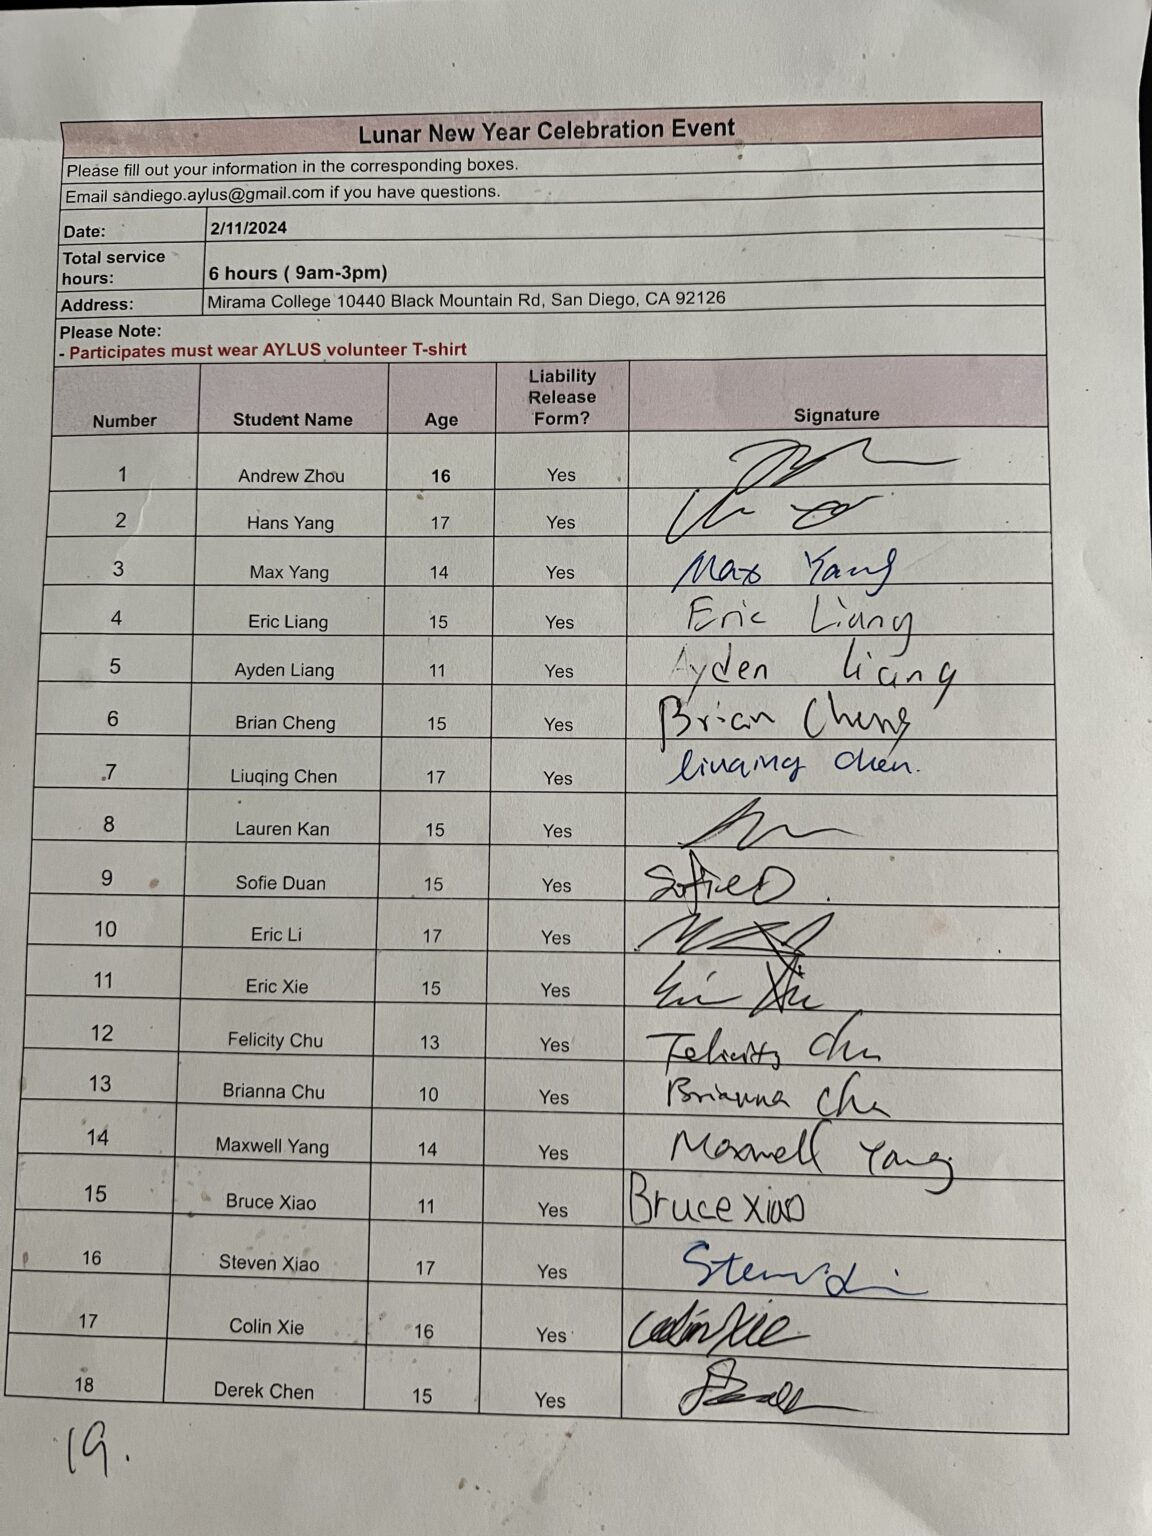 Lunar New Year Celebration Event
Please fill out your information in the corresponding boxes.
Email sandiego.aylus@gmail.com if you have questions.
Date: 2/11/2024
Total service hours: 6 hours ( 9am-3pm)
Address: Mirama College 10440 Black Mountain Rd, San Diego, CA 92126
Please Note:
- Participates must wear AYLUS volunteer T-shirt
Number Student Name Age Liability Release Form? Signature
1 Andrew Zhou 16 Yes
2 Hans Yang 17 Yes
3 Max Yang 14 Yes Max Yang
4 Eric Liang 15 Yes Eric Liang
5 Ayden Liang 11 Yes Ayden Liang
6 Brian Cheng 15 Yes Brian Cheng
7 Liuqing Chen 17 Yes liuqing chen.
8 Lauren Kan 15 Yes
9 Sofie Duan 15 Yes Sofie D.
10 Eric Li 17 Yes
11 Eric Xie 15 Yes Eric Xie
12 Felicity Chu 13 Yes Felicity Chu
13 Brianna Chu 10 Yes Brianna Chu
14 Maxwell Yang 14 Yes Maxwell Yang
15 Bruce Xiao 11 Yes Bruce Xiao
16 Steven Xiao 17 Yes
17 Colin Xie 16 Yes Colin Xie
18 Derek Chen 15 Yes
19.